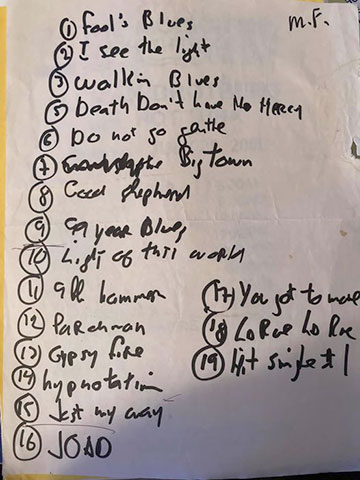 M.F.
① Fool's Blues
② I see the light
③ Walkin Blues
⑤ Death Don't have No Mercy
⑥ Do not go gentle
⑦ Big Town
⑧ Good Shepherd
⑨ 99 year Blues
⑩ Light of this world
⑪ 9 lb hammer
⑫ Parchman
⑬ Gypsy fire
⑭ hypnotation
⑮ Just my way
⑯ JOAD
⑰ You got to move
⑱ Lo Rue Lo Rue
⑲ Hit single #1